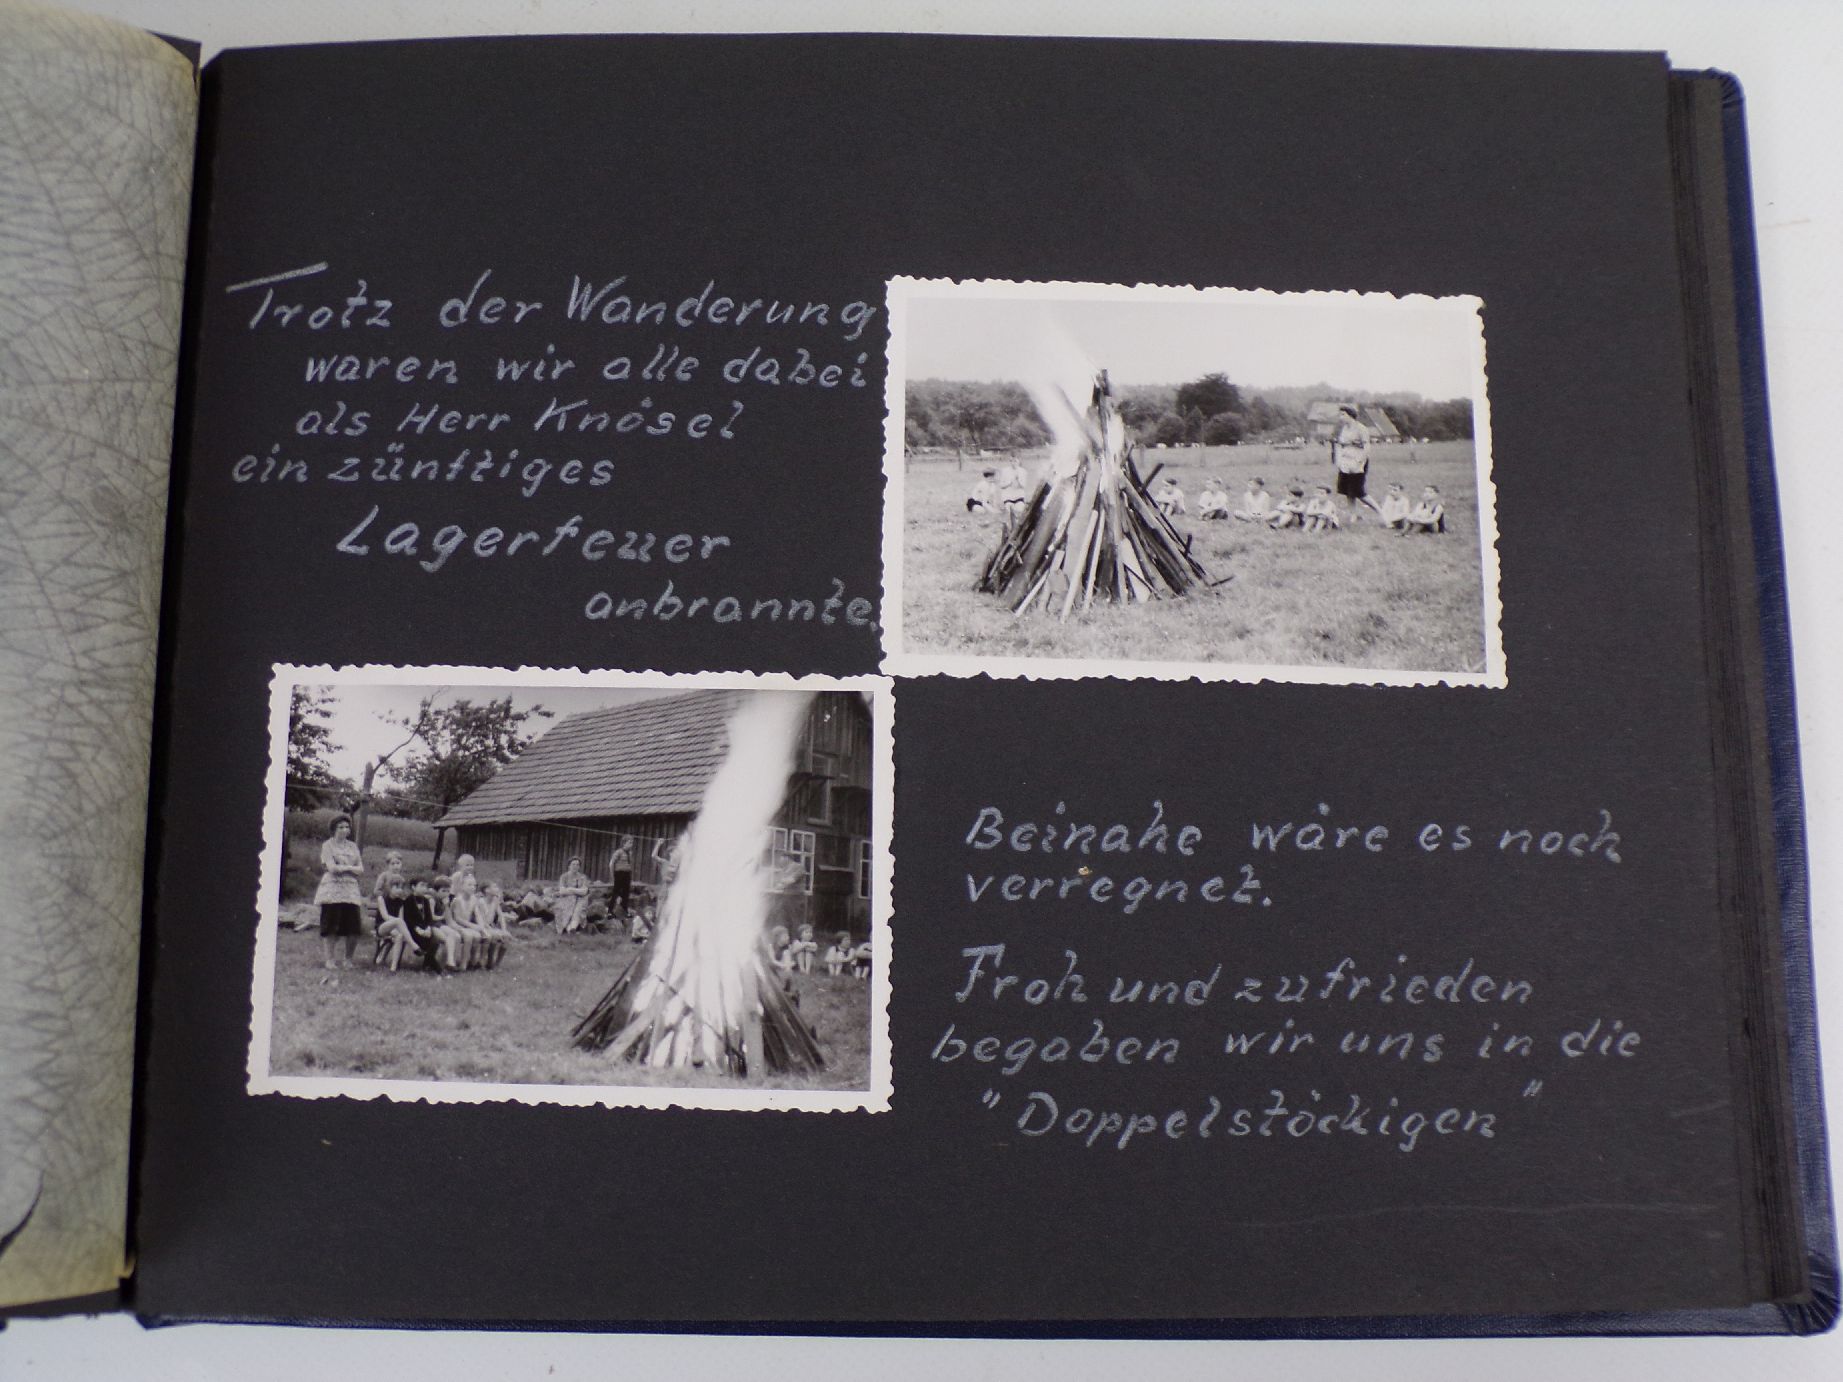 Trotz der Wanderung
waren wir alle dabei
als Herr Knösel
ein zünftiges
Lagerfeuer
anbrannte.
Beinahe wäre es noch
verregnet.
Froh und zufrieden
begaben wir uns in die
"Doppelstöckigen"